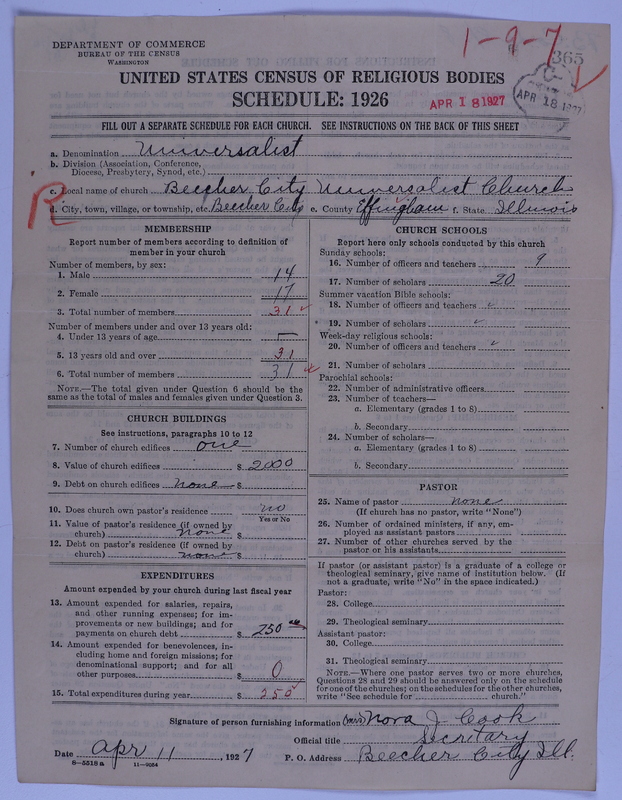 1-9-7
365
DEPARTMENT OF COMMERCE
BUREAU OF THE CENSUS
WASHINGTON
UNITED STATES CENSUS OF RELIGIOUS BODIES
SCHEDULE: 1926
APR 18 1927
APR 18 1927
FILL OUT A SEPARATE SCHEDULE FOR EACH CHURCH. SEE INSTRUCTIONS ON THE BACK OF THIS SHEET
a. Denomination Universalist
b. Division (Association, Conference,
Diocese, Presbytery, Synod, etc.)
c. Local name of church Beecher City Universalist Church
d. City, town, village, or township, etc. Beecher City e. County Effingham f. State Illinois
R
MEMBERSHIP
Report number of members according to definition of
member in your church
Number of members, by sex:
1. Male 14
2. Female 17
3. Total number of members 31
Number of members under and over 13 years old:
4. Under 13 years of age —
5. 13 years old and over 31
6. Total number of members 31
NOTE.—The total given under Question 6 should be the
same as the total of males and females given under Question 3.
CHURCH BUILDINGS
See instructions, paragraphs 10 to 12
7. Number of church edifices one
8. Value of church edifices $ 2000
9. Debt on church edifices none $
10. Does church own pastor's residence no
Yes or No
11. Value of pastor's residence (if owned by
church) none $
12. Debt on pastor's residence (if owned by
church) none $
EXPENDITURES
Amount expended by your church during last fiscal year
13. Amount expended for salaries, repairs,
and other running expenses; for im-
provements or new buildings; and for
payments on church debt $ 250
14. Amount expended for benevolences, in-
cluding home and foreign missions; for
denominational support; and for all
other purposes $ 0
15. Total expenditures during year $ 250
CHURCH SCHOOLS
Report here only schools conducted by this church
Sunday schools:
16. Number of officers and teachers 9
17. Number of scholars 20
Summer vacation Bible schools:
18. Number of officers and teachers
19. Number of scholars
Week-day religious schools:
20. Number of officers and teachers
21. Number of scholars
Parochial schools:
22. Number of administrative officers
23. Number of teachers—
a. Elementary (grades 1 to 8)
b. Secondary
24. Number of scholars—
a. Elementary (grades 1 to 8)
b. Secondary
PASTOR
25. Name of pastor none
(If church has no pastor, write "None")
26. Number of ordained ministers, if any, em-
ployed as assistant pastors
27. Number of other churches served by the
pastor or his assistants
If pastor (or assistant pastor) is a graduate of a college or
theological seminary, give name of institution below. (If
not a graduate, write "No" in the space indicated.)
Pastor:
28. College
29. Theological seminary
Assistant pastor:
30. College
31. Theological seminary
NOTE.—Where one pastor serves two or more churches,
Questions 28 and 29 should be answered only on the schedule
for one of the churches; on the schedules for the other churches,
write "See schedule for church."
Signature of person furnishing information (Mrs) Nora J Cook
Official title Secretary
Date Apr 11, 1927
P. O. Address Beecher City Ill.
8-5518 a
11-9054